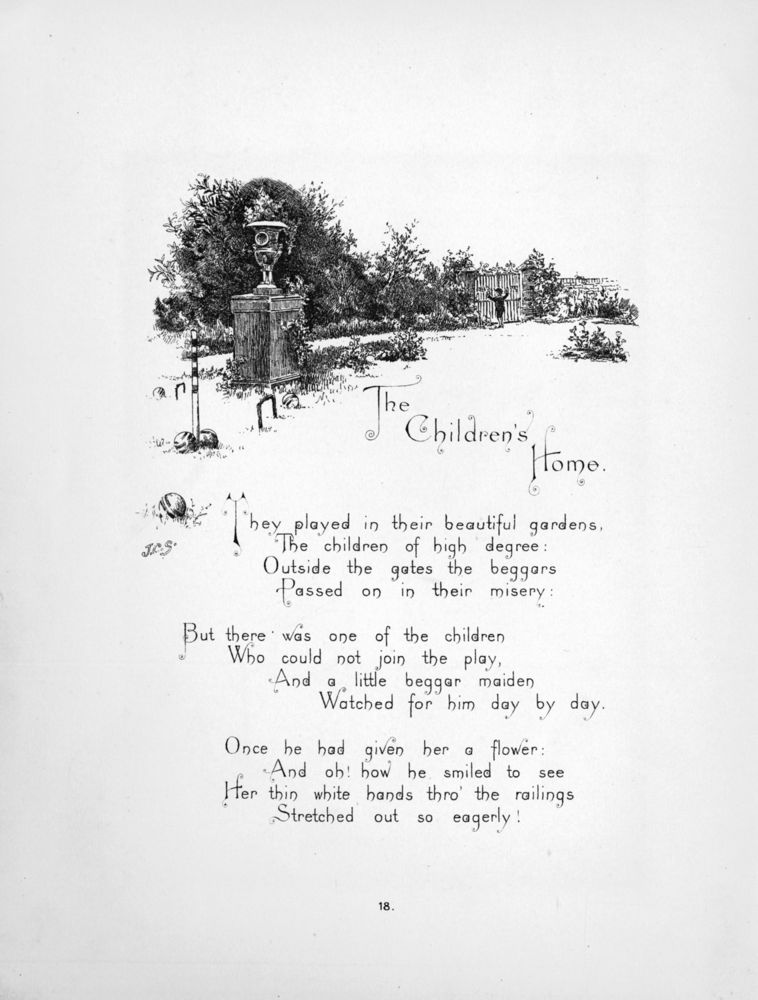 The
Children's
Home.
They played in their beautiful gardens,
The children of high degree:
Outside the gates the beggars
Passed on in their misery:
But there was one of the children
Who could not join the play,
And a little beggar maiden
Watched for him day by day.
Once he had given her a flower:
And oh! how he smiled to see
Her thin white hands thro' the railings
Stretched out so eagerly!
18.